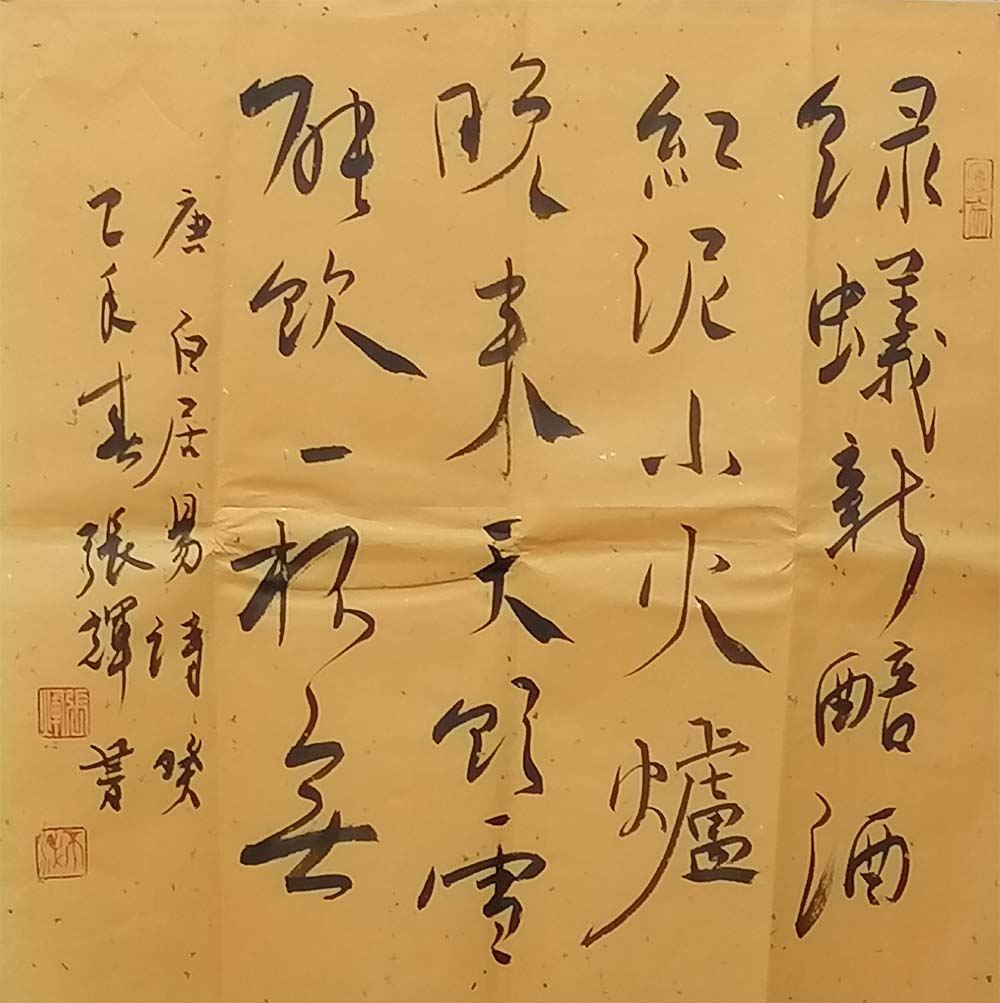 緑蟻新醅酒
紅泥小火爐
晚来天欲雪
能飲一杯無
唐白居易詩癸
巳年春張輝書